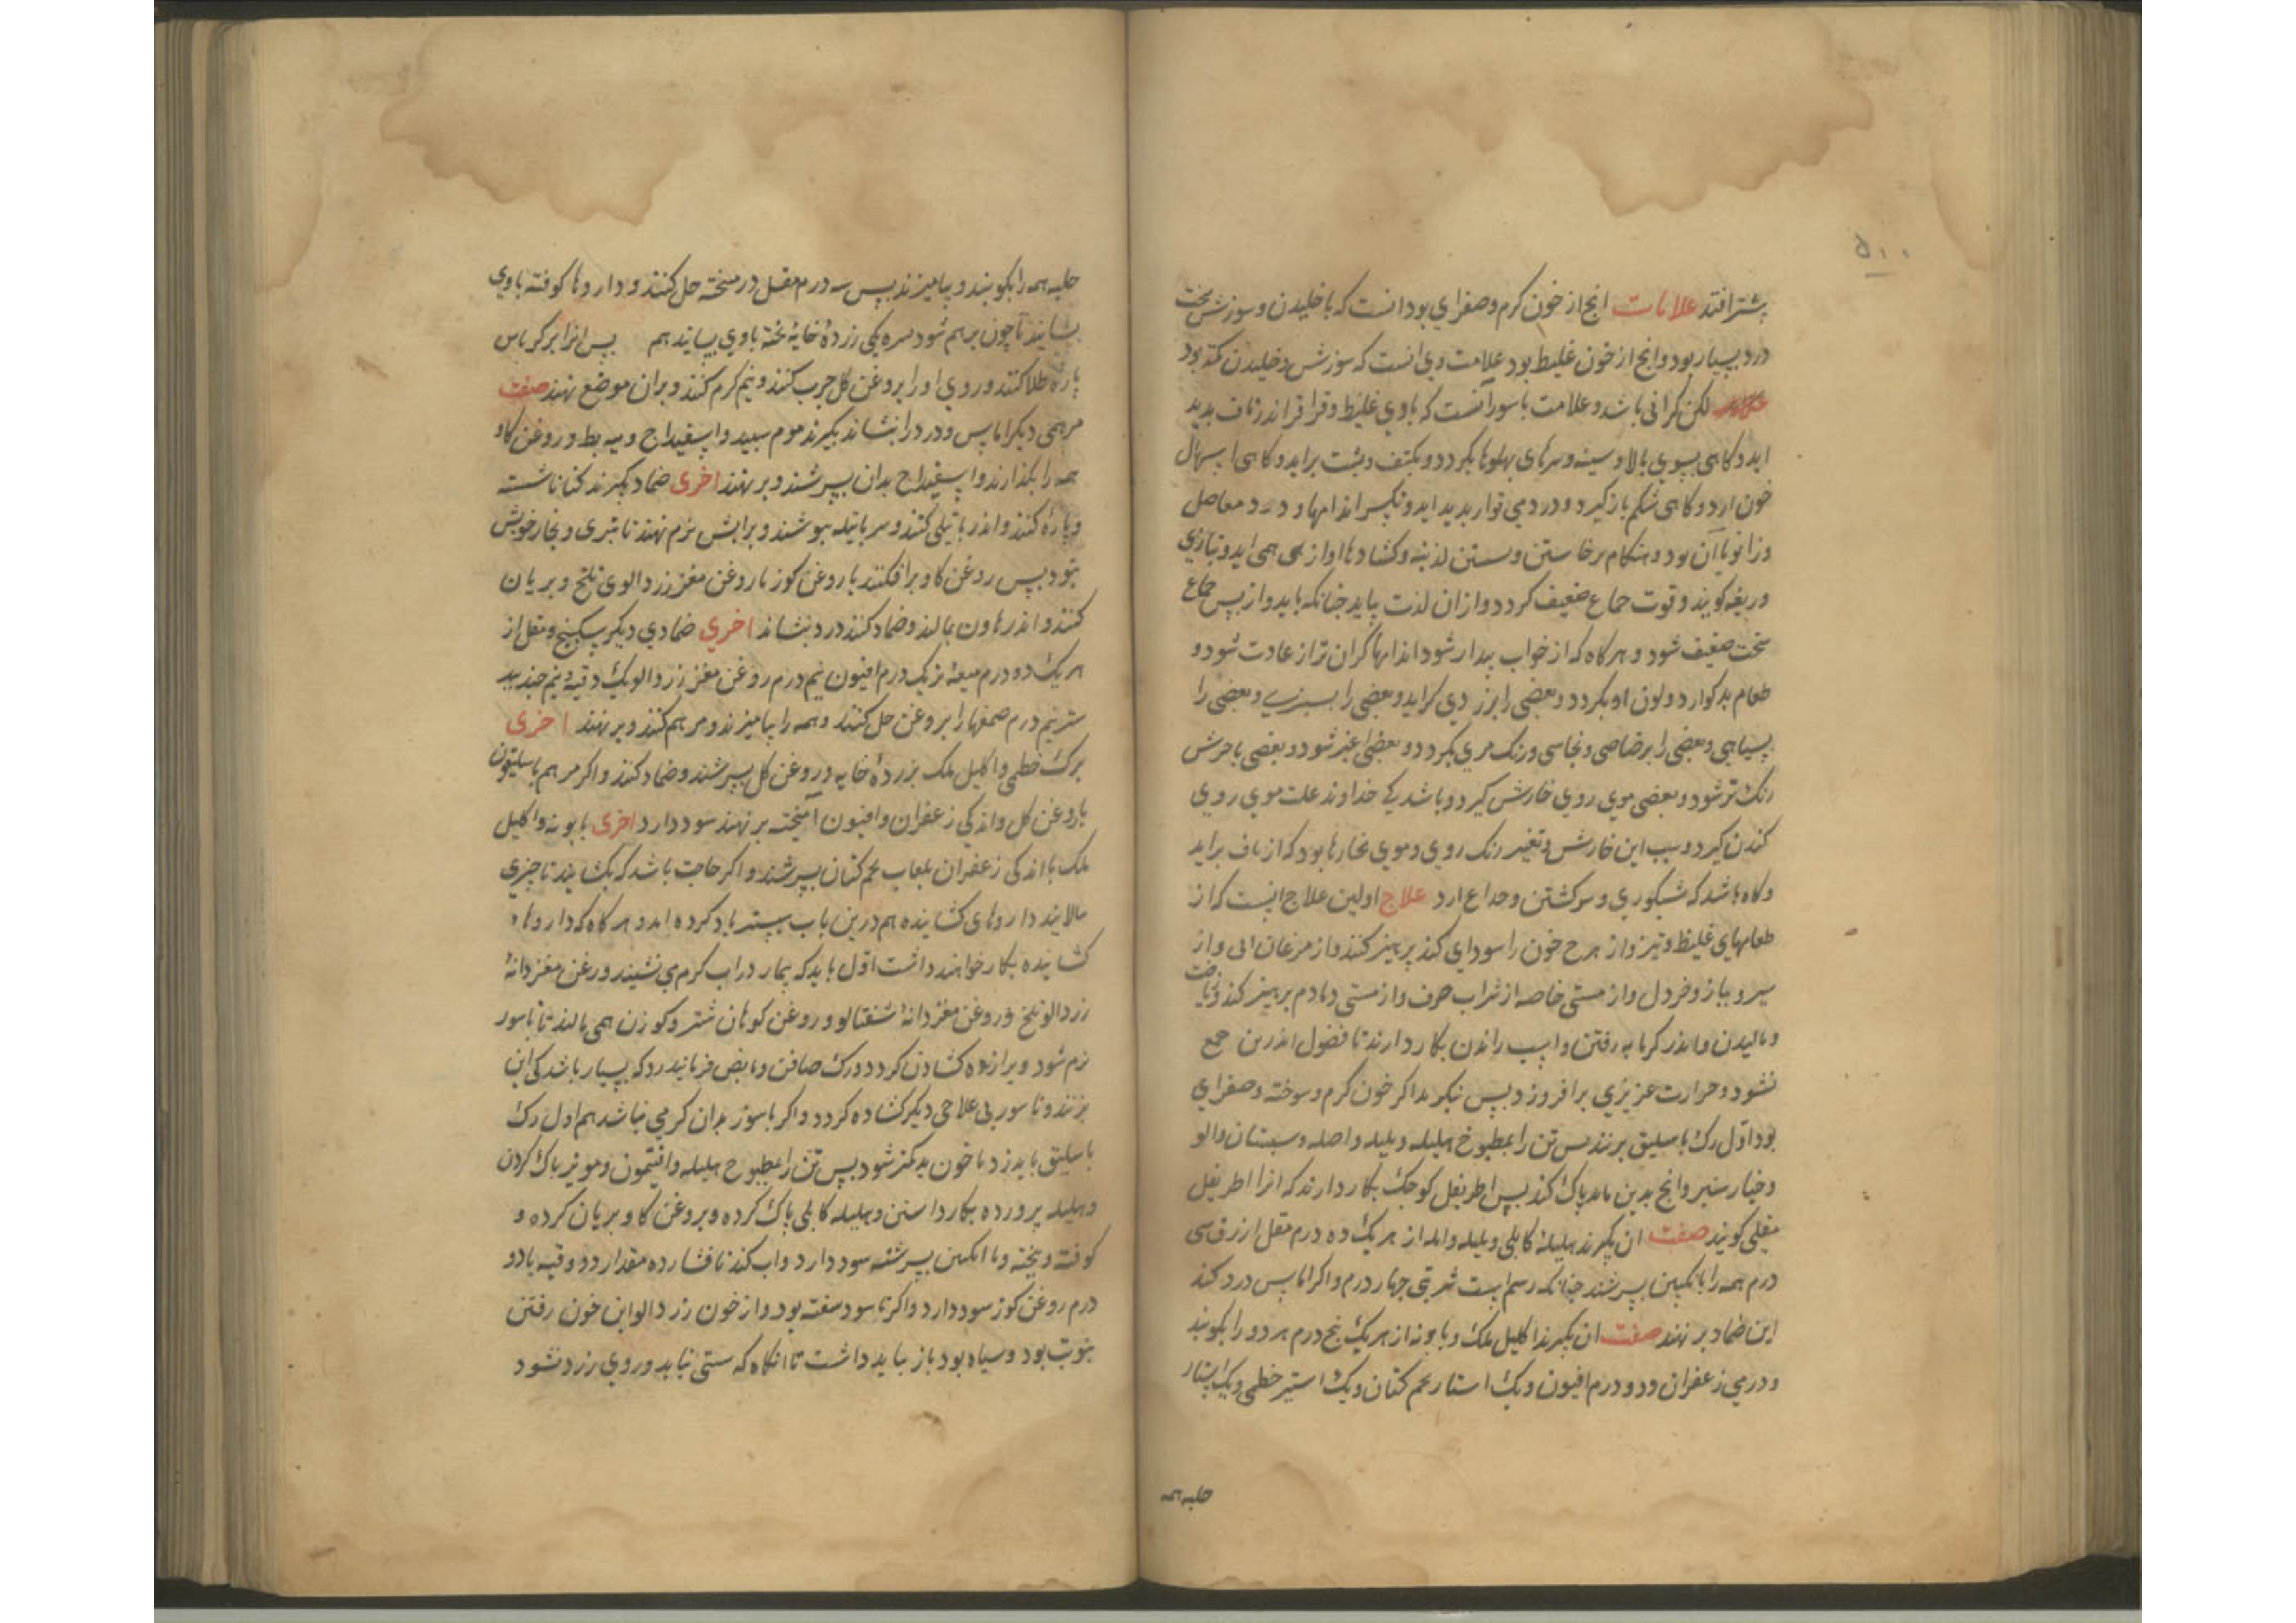 ۵۰۰
بیشتر افتد علامات انج از خون کرم و صفرای بود انست که با خلیدن و سوزش سخت
درد بسیار بود و انج از خون غلیظ بود علامت وی انست که سوزش و خلیدن کمتر بود
لکن کرانی باشد و علامت باسور آنست که باوی غلیظ و قراقر اندر ناف بدید
اید و کاهی بسوی بالا و سینه و سرهای بهلوها بکردد و بکتف و بشت براید و کاهی اسهال
خون ارد و کاهی شکم باز کیرد و درد می توار بدید اید و تکسر اندامها و درد مفاصل
و زانو با آن بود و هنکام برخاستن و نشستن و کشادها اواز می همی اید و بتازی
کویند و قوت جماع ضعیف کردد و ازان لذت نیابد جنانکه باید و از پس جماع
سخت ضعیف شود و هرکاه که از خواب بیدار شود اندامها کران تر از عادت شود و
طعام بد کوارد و لون او بکردد و بعضی را بزردی کراید و بعضی را بسبزی و بعضی را
بسیاهی و بعضی را برصاصی و نحاسی و رنک مری بکردد و بعضی اغبر شود و بعضی باحرش
رنک تر شود و بعضی موی روی خارش کیرد و باشد که خداوند علت موی روی
کندن کیرد و سبب این خارش و تغیر رنک روی و موی بخارها بود که از ناف براید
و کاه باشد که شبکوری و سرکشتن و صداع ارد علاج اولین علاج اینست که از
طعامهای غلیظ و تیز و از هرج خون را سودای کند پرهیز کنند و از مرغان ابی و از
سیر و پیاز و خردل و از مستی خاصه از شراب صرف و از مستی دمادم پرهیز کند و ریاضت
و مالیدن و اندر کرمابه رفتن و اسب راندن بکار دارند تا فضول اندر تن جمع
نشود و حرارت عزیزی برافروزد پس بنکرند اکر خون کرم و سوخته و صفرای
بود اوّل رک باسلیق برنند پس تن را بمطبوخ هلیله و بلیله و امله و سبستان و الو
و خیارشنبر و انج بدین ماند پاک کند پس اطریفل کوجک بکار دارند که انرا اطریفل
مقلی کویند صفت ان بکیرند هلیلۀ کابلی و بلیله و امله از هر یک ده درم مقل ازرق سی
درم همه را بانکبین بسرشند جنانکه رسم است شربتی جهار درم و اکر اماس درد کند
این ضماد بر نهند صفت ان بکیرند اکلیل ملک و بابونه از هر یک بنج درم هر دو را بکوبند
و درمی زعفران و دو درم افیون و یک استار تخم کتان و یک استیر خطمی و یک استار
حلبه همه
حلبه همه را بکوبند و بیامیزند پس سه درم مقل در میبخته حل کنند و داروها کوفته باوی
بسایند تا چون مرهم شود پس یکی زردۀ خایۀ بخته باوی بسایند هم پس انرا بر کرباس
پارۀ طلا کنند و روی او را بروغن کل جرب کنند و نیم کرم کنند و بران موضع نهند صفت
مرهمی دیکر اماس و درد را بنشاند بکیرند موم سبید و اسفیداج و پیه بط و روغن کاو
همه را بکدازند و اسفیداج بدان بسرشند و بر نهند اخری ضماد بکیرند کندنا شسته
و پاره کنند و اندر باتیلی کنند و سر باتیله بپوشند و بر اتش نرم نهند تا بتری و بخار خویش
بتود پس روغن کاو برافکنند یا روغن کوز یا روغن مغز زردالوی تلخ و بریان
کنند و اندر هاون بمالند و ضماد کنند درد بنشاند اخری ضمادی دیکر سکبینج و مقل از
هر یک دو درم میعۀ تر یک درم افیون نیم درم روغن مغز زردالو یک وقیه و نیم جندبید
ستر نیم درم صمغها را بروغن حل کنند و همه را بیامیزند و مرهم کنند و بر نهند اخری
برک خطمی و اکلیل ملک بزردۀ خایه و روغن کل بسرشند و ضماد کنند و اکر مرهم باسلیقون
باروغن کل و اندکی زعفران و افیون آمیخته بر نهند سود دارد اخری بابونه و اکلیل
ملک با اندکی زعفران بلعاب تخم کتان بسرشند و اکر حاجت باشد که بکشایند تا چیزی
بالایند داروهای کشاینده هم درین باب بیشتر یاد کرده امد و هرکاه که داروها ء
کشاینده بکار خواهند داشت اوّل باید که بیمار در اب کرم می نشیند و رغن مغز دانۀ
زردالو تلخ و روغن مغز دانۀ شفتالو و روغن کوهان شتر و کوزن همی مالند تا باسور
نرم شود و برازاده کشادن کردد و رک صافن و مابض فرمایند زد که بسیار باشد کی این
بزنند و باسور بی علاجی دیکر کشاده کردد و اکر باسوز بدان کرمی نباشد هم اول رک
باسلیق باید زد تا خون بد کمتر شود پس تن را بمطبوخ هلیله و افتیمون و مویز پاک کردن
و هلیله پرورده بکار داشتن و هلیله کابلی پاک کرده و بروغن کاو بریان کرده و
کوفته و بیخته و با انکبین بسرشته سود دارد و اب کندنا فشارده مقدار دو وقیه با دو
درم روغن کوز سود دارد و اکر باسور سفته بود و از خون زردالو این خون رفتن
بنوبت بود و سیاه بود باز نباید داشت تا انکاه که سستی نیابد و روی زرد نشود